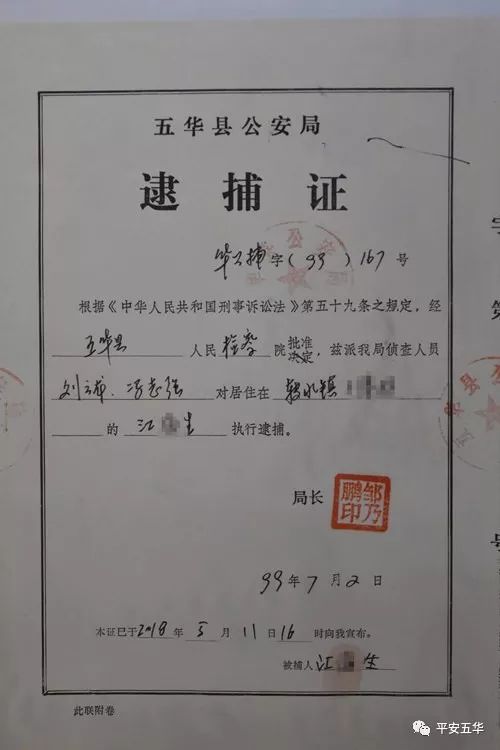 五华县公安局
逮捕证
华公捕字(99)167号
根据《中华人民共和国刑事诉讼法》第五十九条之规定，经
五华县人民检察院批准决定，兹派我局侦查人员
刘 冯志强对居住在转水镇
的江 生执行逮捕。
局长 邹乃鹏印
99年7月2日
本证已于2018年5月11日16时向我宣布。
被捕人江 生
此联附卷
平安五华